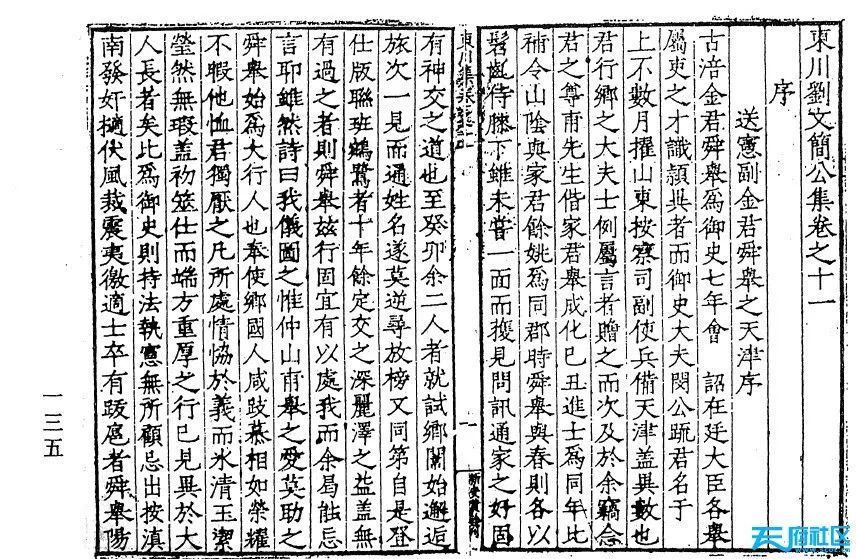 東川劉文簡公集卷之十一
序
送憲副金君舜舉之天津序
古涪金君舜舉爲御史七年會 詔在廷大臣各舉
屬吏之才識穎異者而御史大夫閔公䟽君名于
上不數月擢山東按察司副使兵備天津盖異數也
君行鄉之大夫士例屬言者贈之而次及於余竊念
君之尊甫先生偕家君舉成化己丑進士爲同年比
補令山陰與家君餘姚爲同郡時舜舉與春則各以
髫齓侍膝下雖未嘗一面而獲見問訊通家之好固
東川集卷之十一
一
有神交之道也至癸卯余二人者就試鄉闈始邂逅
旅次一見而通姓名遂莫逆尋放榜又同第自是登
仕版聯班鵷鷺者十年餘定交之深麗澤之益盖無
有過之者則舜舉兹行固宜有以處我而余曷能忘
言耶雖然詩曰我儀圖之惟仲山甫舉之愛莫助之
舜舉始爲大行人也奉使鄉國人咸跂慕相如榮耀
不暇他恤君獨厭之凡所處情恊於義而氷清玉潔
瑩然無瑕盖初筮仕而端方重厚之行已見異於大
人長者矣比爲御史則持法執憲無所顧忌出按滇
南發奸擿伏風裁震夷徼適士卒有跋扈者舜舉陽
一三五
天府社区